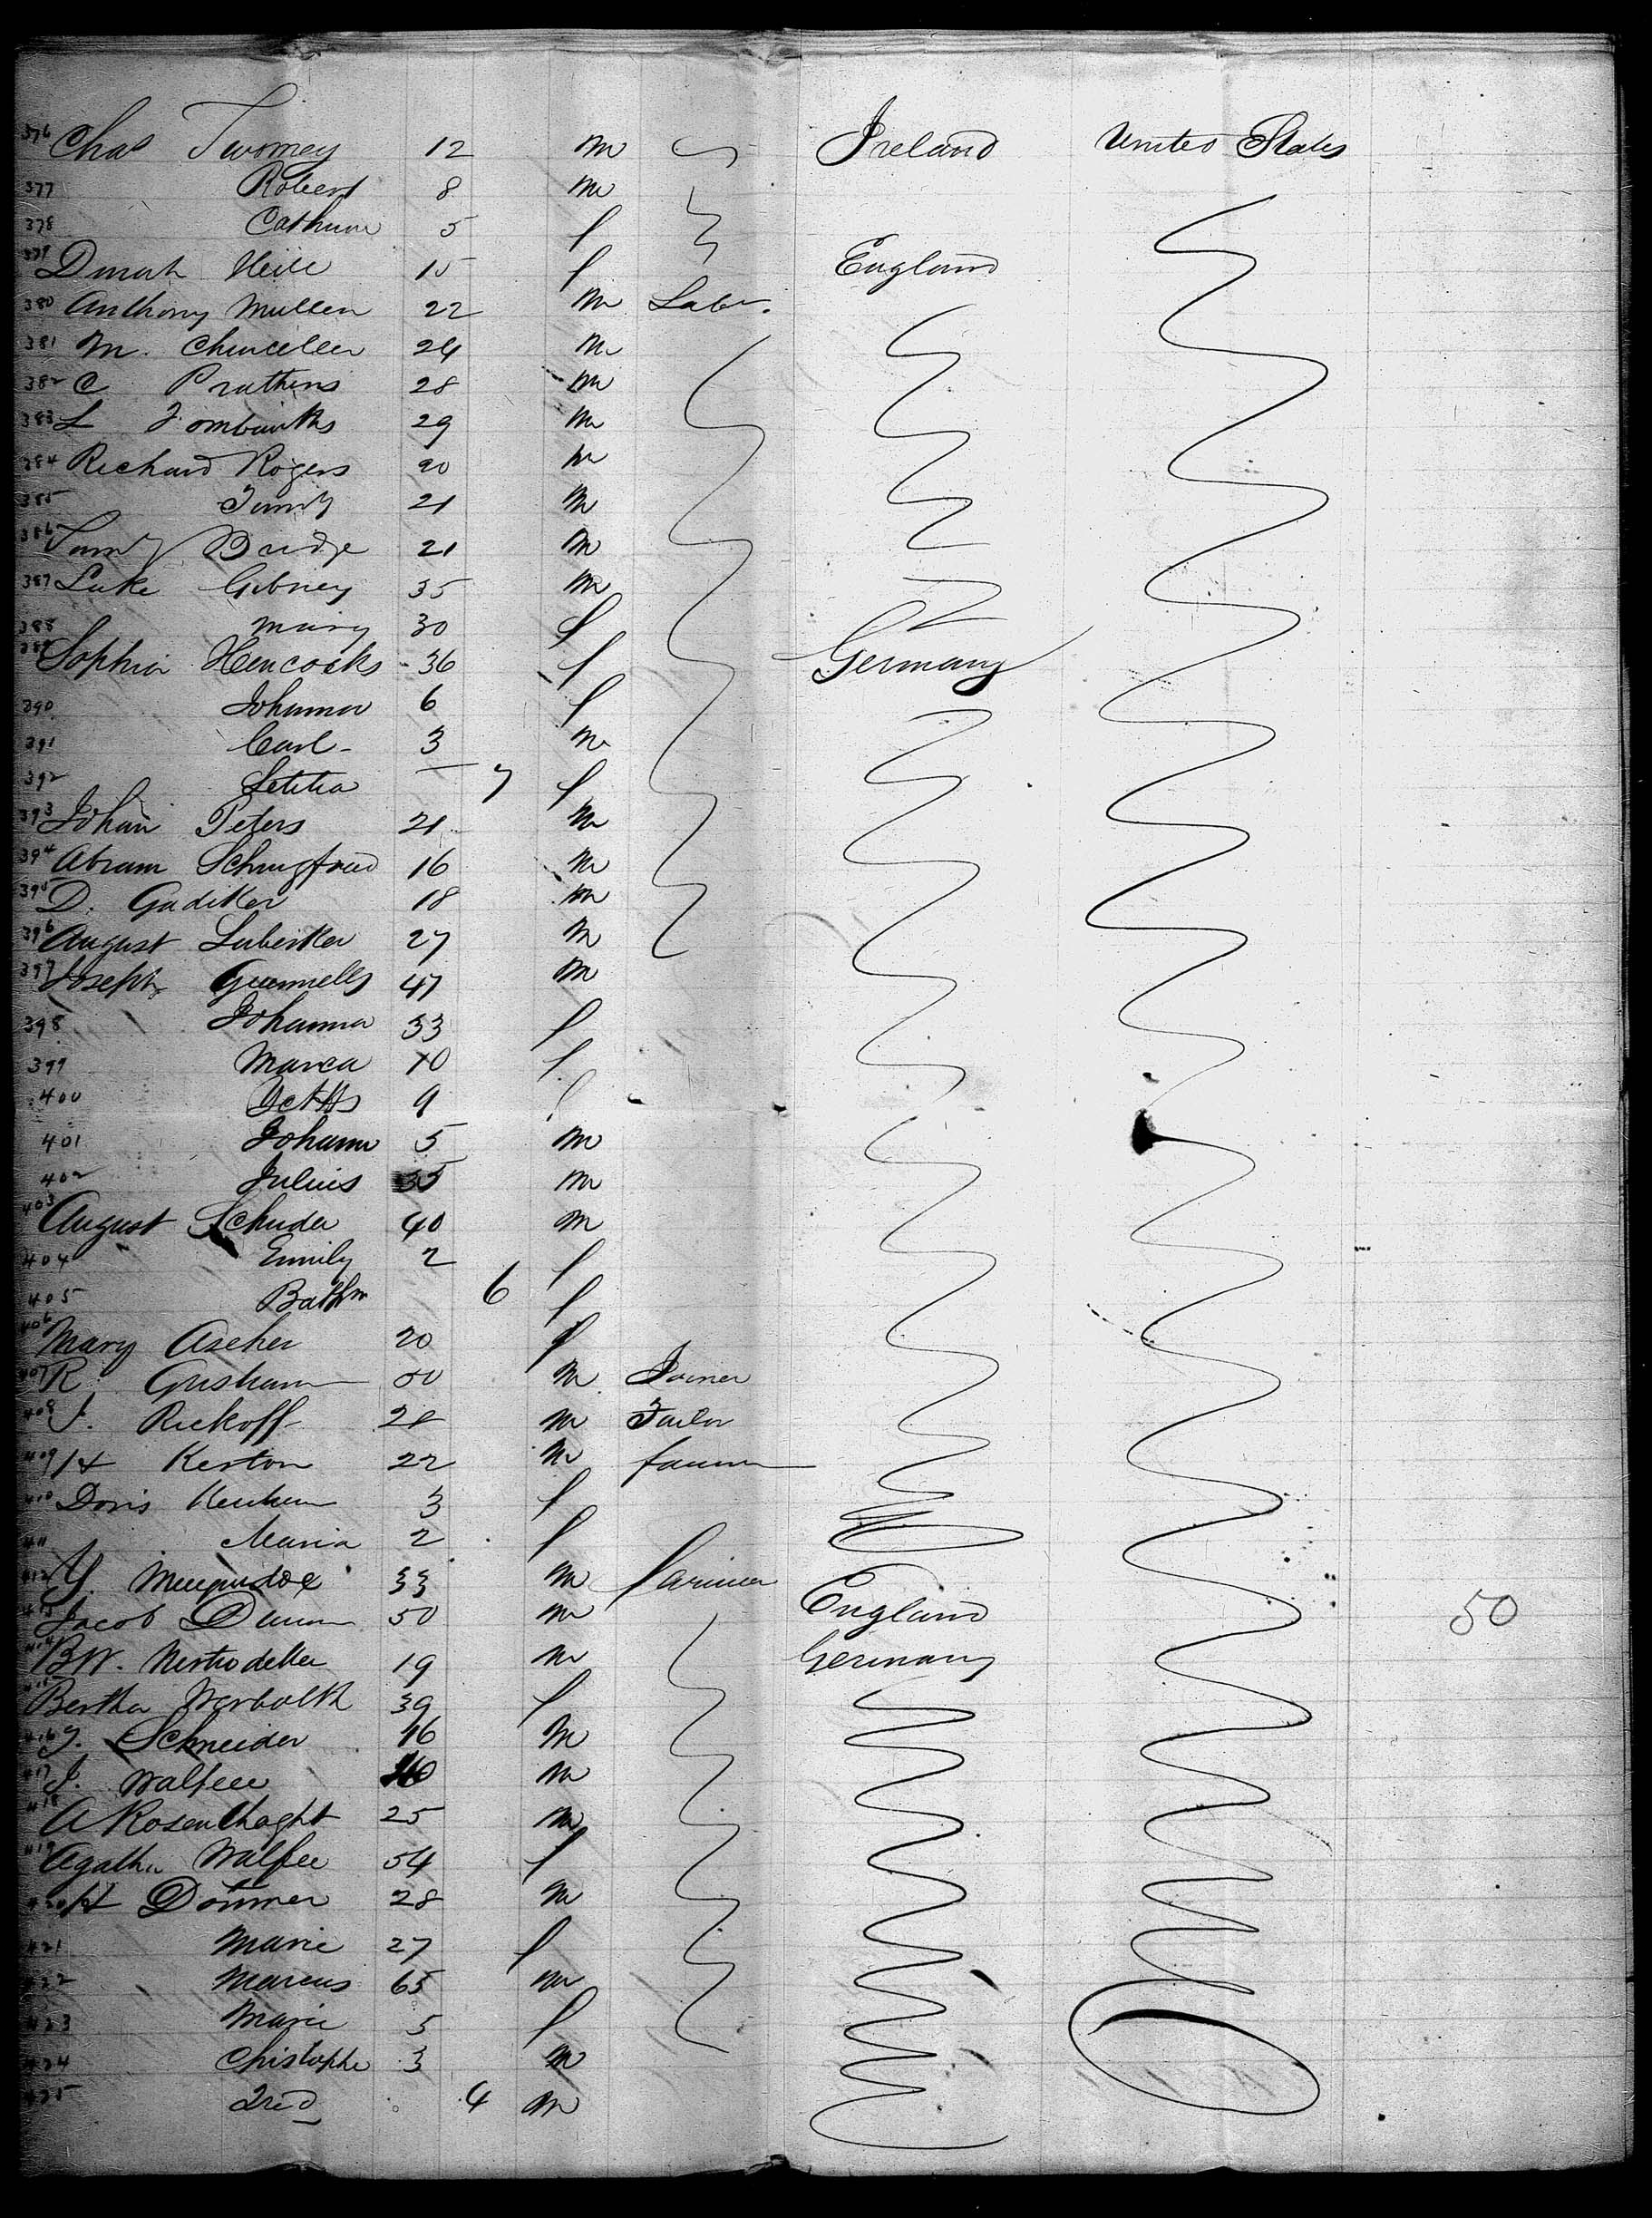 376 Chas Twomey 12 m Ireland United States
377 Robert 8 m
378 Catherine 5 f
379 Dinah 15 f England
380 Anthony Mullen 22 m Labr.
381 M. Chanceller 24 m
382 C 28 m
383 L 29 m
384 Richard Rogers 20 m
385 21 m
386 Bridge 21 m
387 Luke Gibney 35 m
388 Mary 30 f
389 Sophia Hencocks 36 f Germany
390 Johanna 6 f
391 Carl 3 m
392 Letitia — 7 f
393 Johan Peters 21 m
394 Abram 16 m
395 D. Gadiker 18 m
396 August Lubeskea 27 m
397 Joseph 47 m
398 Johanna 33 f
399 Maria 10 f
400 9 f
401 Johann 5 m
402 Julius m
403 August Schuda 40 m
404 Emily 2 f
405 6 f
406 Mary Ascher 20 f
407 R. Grisham 50 m Joiner
408 J. Rickoff 28 m Tailor
409 H Keston 22 m farmer
410 Doris 3 f
411 Maria 2 f
412 Y. 33 m farmer
413 Jacob Dunn 50 m England 50
414 B.W. 19 m Germany
415 Bertha 39 f
416 J. Schneider 16 m
417 J. Walfee m
418 A Rosenthaght 25 m
419 Agatha Walfee 54 f
420 H Dommer 28 m
421 Marie 27 f
422 Marcus 65 m
423 Marie 5 f
424 Christophe 3 m
425 Fred 4 m